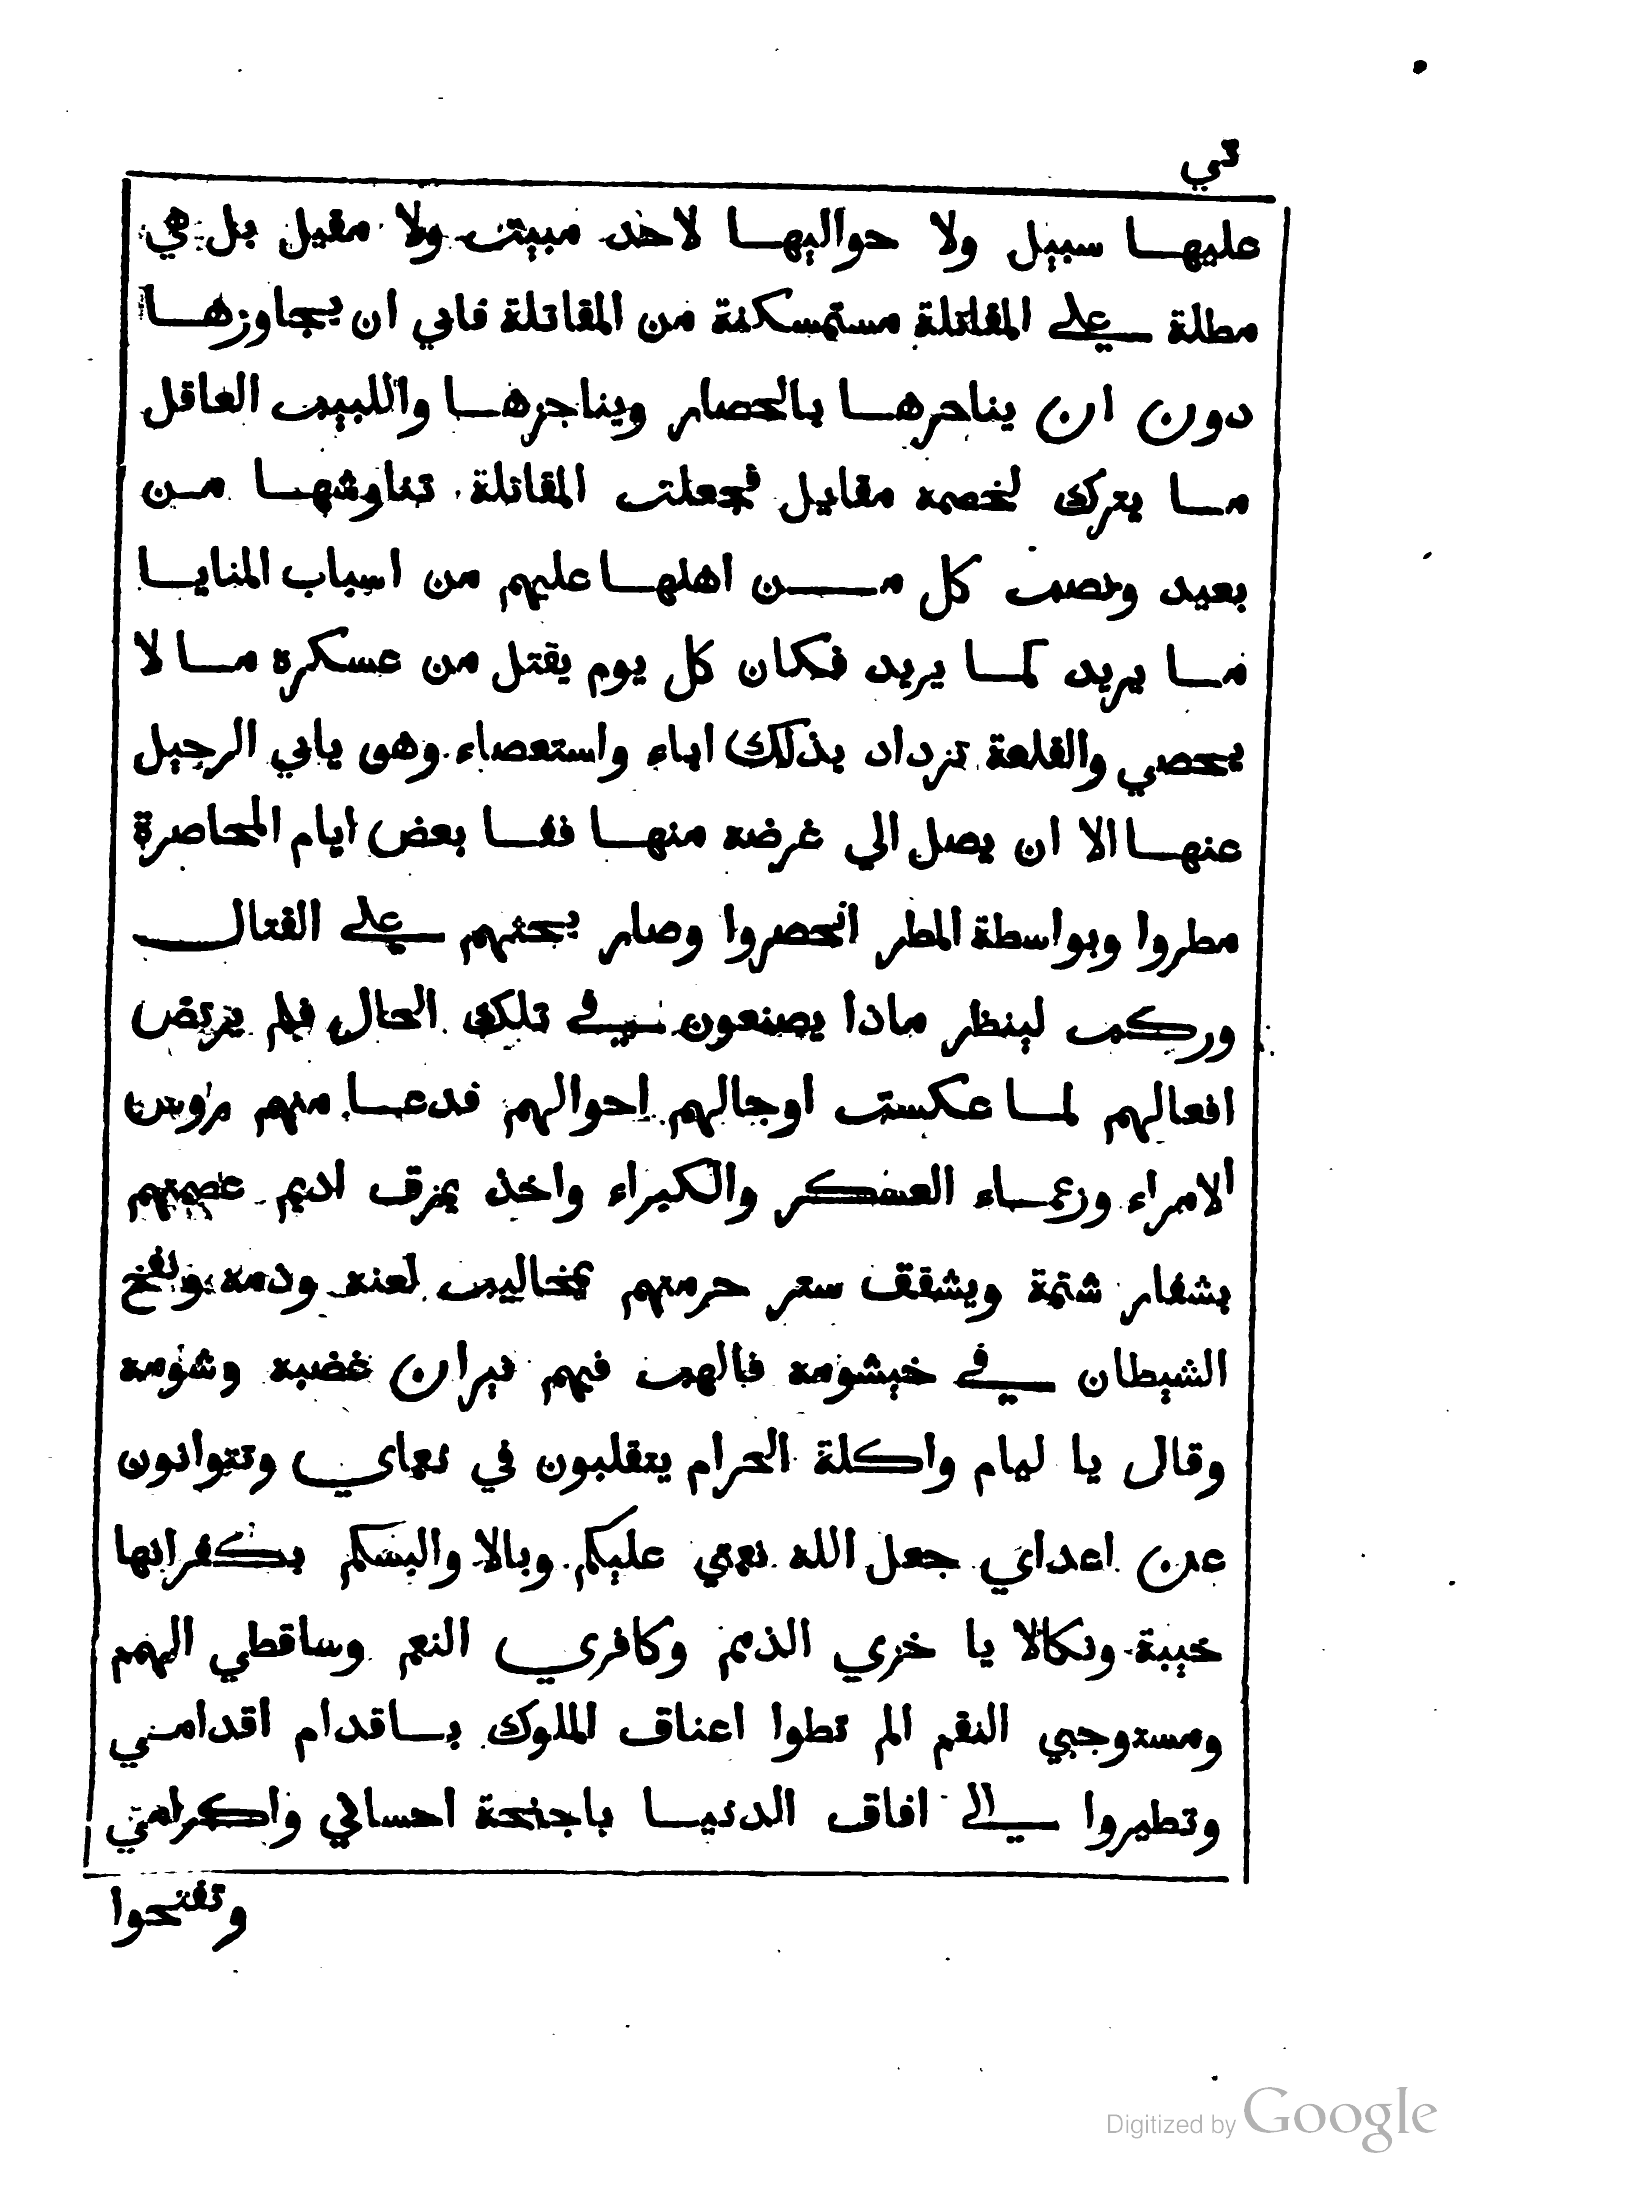 تي
عليها سبيل ولا حواليها لاحد مبيت ولا مقيل بل هي
مطلة علي المقاتلة مستمسكنة من المقاتلة فابي ان يجاوزها
دون ان يناحرها بالحصار ويناجرها واللبيب العاقل
ما يترك لخصمه مقايل فجعلت المقاتلة تناوشها من
بعيد ونصب كل من اهلها عليهم من اسباب المنايا
ما يريد كما يريد فكان كل يوم يقتل من عسكره ما لا
يحصي والقلعة تزداد بذلك اباء واستعصاء وهو يابي الرحيل
عنها الا ان يصل الي غرضه منها ففا بعض ايام المحاصرة
مطروا وبواسطة المطر انحصروا وصار يحثهم علي القتال
وركب لينظر ماذا يصنعون في تلك الحال فلم يرتض
افعالهم لما عكست اوجالهم احوالهم فدعا منهم روس
الامراء وزعماء العسكر والكبراء واخذ يمزق اديم عصمتهم
بشفار شتمة ويشقق ستر حرمتهم بمخاليب لعنه وذمه ونفخ
الشيطان في خيشومه فالهب فيهم نيران غضبه وشومه
وقال يا ليام واكلة الحرام يتقلبون في نعماي وتتوانون
عن اعداي جعل الله نعمتي عليكم وبالا والبسكم بكفرانها
خيبة ونكالا يا خزي الذمم وكافري النعم وساقطي الهمم
ومستوجبي النقم الم تطوا اعناق الملوك باقدام اقدامي
وتطيروا الي افاق الدنيا باجنحة احساني واكرامتي
وتفتحوا
Digitized by Google